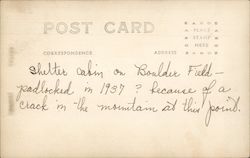 POST CARD
PLACE
STAMP
HERE
CORRESPONDENCE
ADDRESS
Shelter cabin on Boulder Field -
padlocked in 1937? because of a
crack in the mountain at this point.